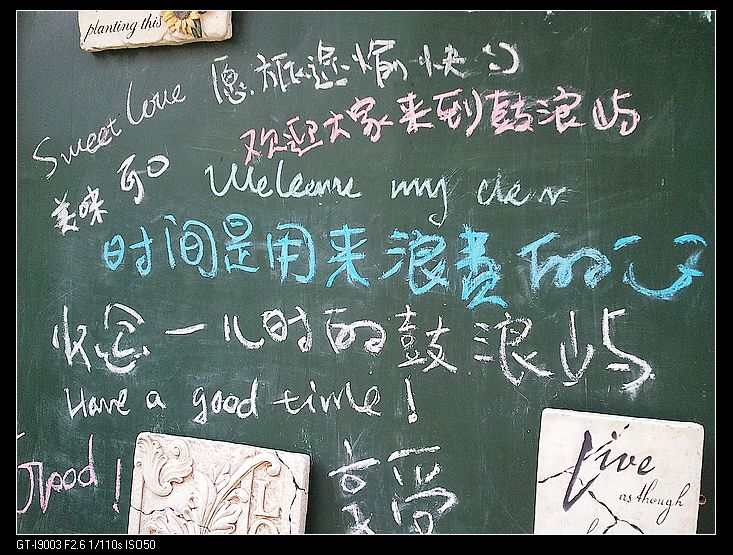 planting this
Sweet Love
愿旅途愉快
欢迎大家来到鼓浪屿
美味
Welcome my dear
时间是用来浪费的
儿时的鼓浪屿
Have a good time!
Good!
享受
Live
as though
GT-I9003 F2.6 1/110s ISO50